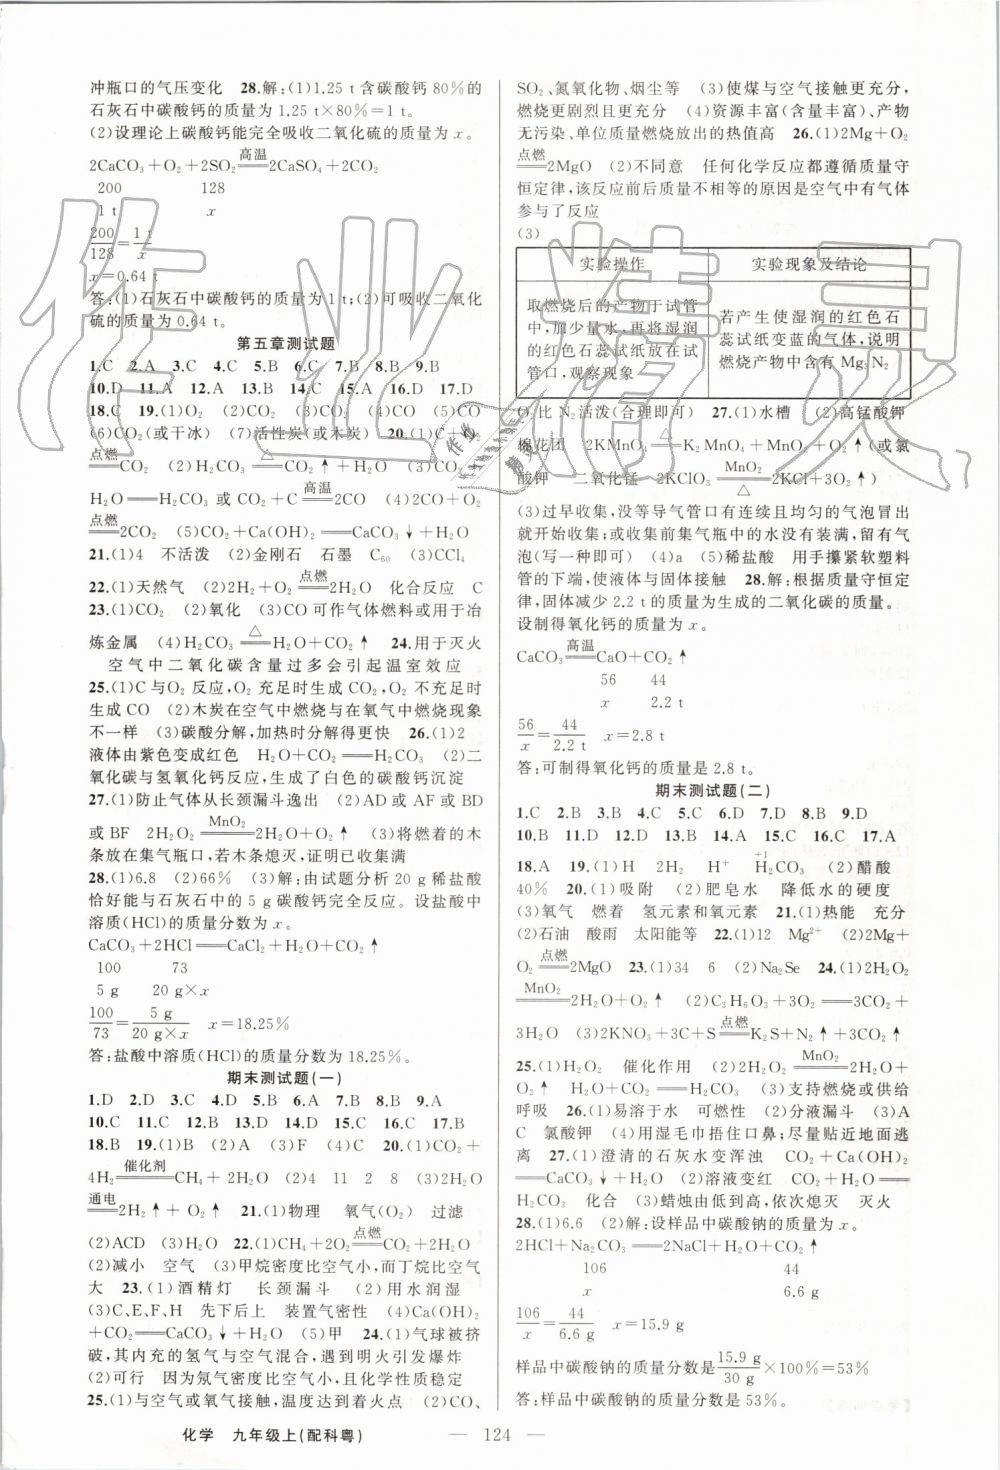 冲瓶口的气压变化 28.解:(1)1.25 t含碳酸钙80%的
石灰石中碳酸钙的质量为1.25 t×80%=1 t。
(2)设理论上碳酸钙能完全吸收二氧化硫的质量为x。
2CaCO₃+O₂+2SO₂ 高温 2CaSO₄+2CO₂
200 128
1 t x
200/128=1 t/x
x=0.64 t
答:(1)石灰石中碳酸钙的质量为1 t;(2)可吸收二氧化
硫的质量为0.64 t。
第五章测试题
1.C 2.A 3.C 4.C 5.B 6.C 7.B 8.B 9.B
10.D 11.A 12.A 13.C 14.A 15.A 16.D 17.D
18.C 19.(1)O₂ (2)CO₂ (3)CO₂ (4)CO (5)CO
(6)CO₂(或干冰) (7)活性炭(或木炭) 20.(1)C+O₂
点燃 CO₂ (2)H₂CO₃ △ (3)CO₂
H₂O══H₂CO₃或CO₂+C 高温 2CO (4)2CO+O₂
点燃 2CO₂ (5)CO₂+Ca(OH)₂══CaCO₃↓+H₂O
21.(1)4 不活泼 (2)金刚石 石墨 C₆₀ (3)CCl₄
22.(1)天然气 (2)2H₂+O₂ 点燃 2H₂O 化合反应 C
23.(1)CO₂ (2)氧化 (3)CO可作气体燃料或用于冶
炼金属 (4)H₂CO₃ △ H₂O+CO₂↑ 24.用于灭火
空气中二氧化碳含量过多会引起温室效应
25.(1)C与O₂反应,O₂充足时生成CO₂,O₂不充足时
生成CO (2)木炭在空气中燃烧与在氧气中燃烧现象
不一样 (3)碳酸分解,加热时分解得更快 26.(1)2
液体由紫色变成红色 H₂O+CO₂══H₂CO₃ (2)二
氧化碳与氢氧化钙反应,生成了白色的碳酸钙沉淀
27.(1)防止气体从长颈漏斗逸出 (2)AD或AF或BD
或BF 2H₂O₂ MnO₂ 2H₂O+O₂↑ (3)将燃着的木
条放在集气瓶口,若木条熄灭,证明已收集满
28.(1)6.8 (2)66% (3)解:由试题分析20 g稀盐酸
恰好能与石灰石中的5 g碳酸钙完全反应。设盐酸中
溶质(HCl)的质量分数为x。
CaCO₃+2HCl══CaCl₂+H₂O+CO₂↑
100 73
5 g 20 g×x
100/73=5 g/(20 g×x) x=18.25%
答:盐酸中溶质(HCl)的质量分数为18.25%。
期末测试题(一)
1.D 2.D 3.C 4.D 5.B 6.A 7.B 8.B 9.A
10.C 11.C 12.B 13.D 14.B 15.C 16.C 17.B
18.B 19.(1)B (2)A (3)F (4)C 20.(1)CO₂+
4H₂ 催化剂 CH₄+2H₂O (2)4 11 2 8 (3)2H₂O
通电 2H₂↑+O₂↑ 21.(1)物理 氧气(O₂) 过滤
(2)ACD (3)H₂O 22.(1)CH₄+2O₂ 点燃 CO₂+2H₂O
(2)减小 空气 (3)甲烷密度比空气小,而丁烷比空气
大 23.(1)酒精灯 长颈漏斗 (2)用水润湿
(3)C、E、F、H 先下后上 装置气密性 (4)Ca(OH)₂
+CO₂══CaCO₃↓+H₂O (5)甲 24.(1)气球被挤
破,其内充的氢气与空气混合,遇到明火引发爆炸
(2)可行 因为氖气密度比空气小,且化学性质稳定
25.(1)与空气或氧气接触,温度达到着火点 (2)CO、
SO₂、氮氧化物、烟尘等 (3)使煤与空气接触更充分,
燃烧更剧烈且更充分 (4)资源丰富(含量丰富)、产物
无污染、单位质量燃烧放出的热值高 26.(1)2Mg+O₂
点燃 2MgO (2)不同意 任何化学反应都遵循质量守
恒定律,该反应前后质量不相等的原因是空气中有气体
参与了反应
(3)
实验操作 实验现象及结论
取燃烧后的产物于试管
中,加少量水,再将湿润
的红色石蕊试纸放在试
管口,观察现象
若产生使湿润的红色石
蕊试纸变蓝的气体,说明
燃烧产物中含有Mg₃N₂
O₂比N₂活泼(合理即可) 27.(1)水槽 (2)高锰酸钾
棉花团 2KMnO₄ △ K₂MnO₄+MnO₂+O₂↑(或氯
酸钾 二氧化锰 2KClO₃ MnO₂ △ 2KCl+3O₂↑)
(3)过早收集,没等导气管口有连续且均匀的气泡冒出
就开始收集;或收集前集气瓶中的水没有装满,留有气
泡(写一种即可) (4)a (5)稀盐酸 用手攥紧软塑料
管的下端,使液体与固体接触 28.解:根据质量守恒定
律,固体减少2.2 t的质量为生成的二氧化碳的质量。
设制得氧化钙的质量为x。
CaCO₃ 高温 CaO+CO₂↑
56 44
x 2.2 t
56/x=44/2.2 t x=2.8 t
答:可制得氧化钙的质量是2.8 t。
期末测试题(二)
1.C 2.B 3.B 4.C 5.B 6.D 7.D 8.B 9.D
10.B 11.D 12.D 13.B 14.A 15.C 16.C 17.A
18.A 19.(1)H 2H₂ H⁺ +1 H₂CO₃ (2)醋酸
40% 20.(1)吸附 (2)肥皂水 降低水的硬度
(3)氧气 燃着 氢元素和氧元素 21.(1)热能 充分
(2)石油 酸雨 太阳能等 22.(1)12 Mg²⁺ (2)2Mg+
O₂ 点燃 2MgO 23.(1)34 6 (2)Na₂Se 24.(1)2H₂O₂
MnO₂ 2H₂O+O₂↑ (2)C₃H₆O₃+3O₂══3CO₂+
3H₂O (3)2KNO₃+3C+S 点燃 K₂S+N₂↑+3CO₂↑
25.(1)H₂O₂ 催化作用 (2)2H₂O₂ MnO₂ 2H₂O+
O₂↑ H₂O+CO₂══H₂CO₃ (3)支持燃烧或供给
呼吸 26.(1)易溶于水 可燃性 (2)分液漏斗 (3)A
C 氯酸钾 (4)用湿毛巾捂住口鼻;尽量贴近地面逃
离 27.(1)澄清的石灰水变浑浊 CO₂+Ca(OH)₂
══CaCO₃↓+H₂O (2)溶液变红 CO₂+H₂O══
H₂CO₃ 化合 (3)蜡烛由低到高,依次熄灭 灭火
28.(1)6.6 (2)解:设样品中碳酸钠的质量为x。
2HCl+Na₂CO₃══2NaCl+H₂O+CO₂↑
106 44
x 6.6 g
106/x=44/6.6 g x=15.9 g
样品中碳酸钠的质量分数是15.9 g/30 g×100%=53%
答:样品中碳酸钠的质量分数是53%。
化学 九年级上(配科粤) — 124 —
作业精灵